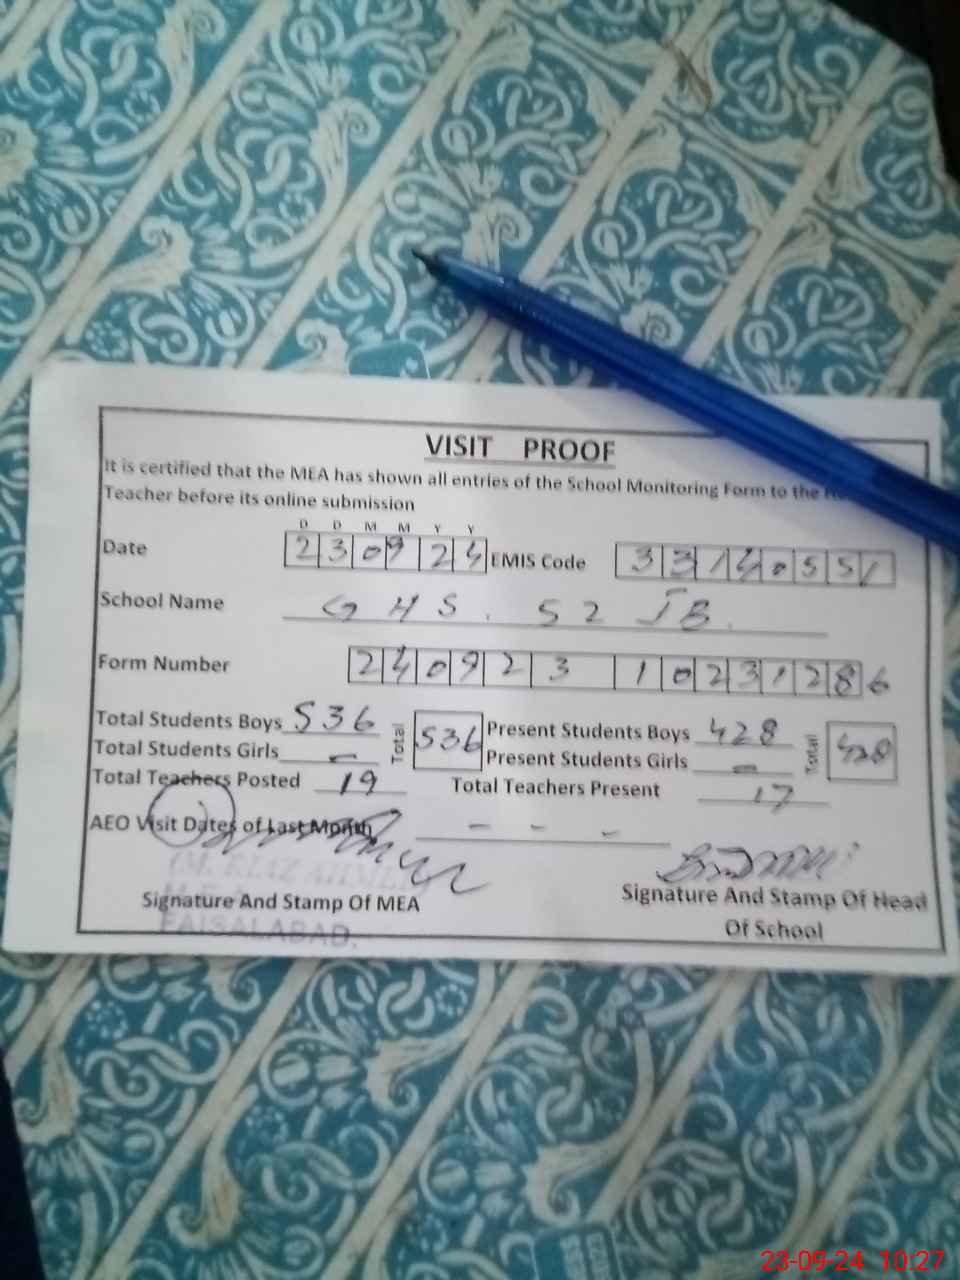 VISIT PROOF
It is certified that the MEA has shown all entries of the School Monitoring Form to the
Teacher before its online submission
D D M M Y Y
Date 230924 EMIS Code 33140551
School Name GHS. 52 JB.
Form Number 24092310231286
Total Students Boys 536 Total 536 Present Students Boys 428 Total 428
Total Students Girls – Present Students Girls –
Total Teachers Posted 19 Total Teachers Present 17
AEO Visit Dates of Last Month – – –
(M. RIAZ AHMED)
Signature And Stamp Of MEA Signature And Stamp Of Head
M.E.A Of School
FAISALABAD.
23-09-24 10:27